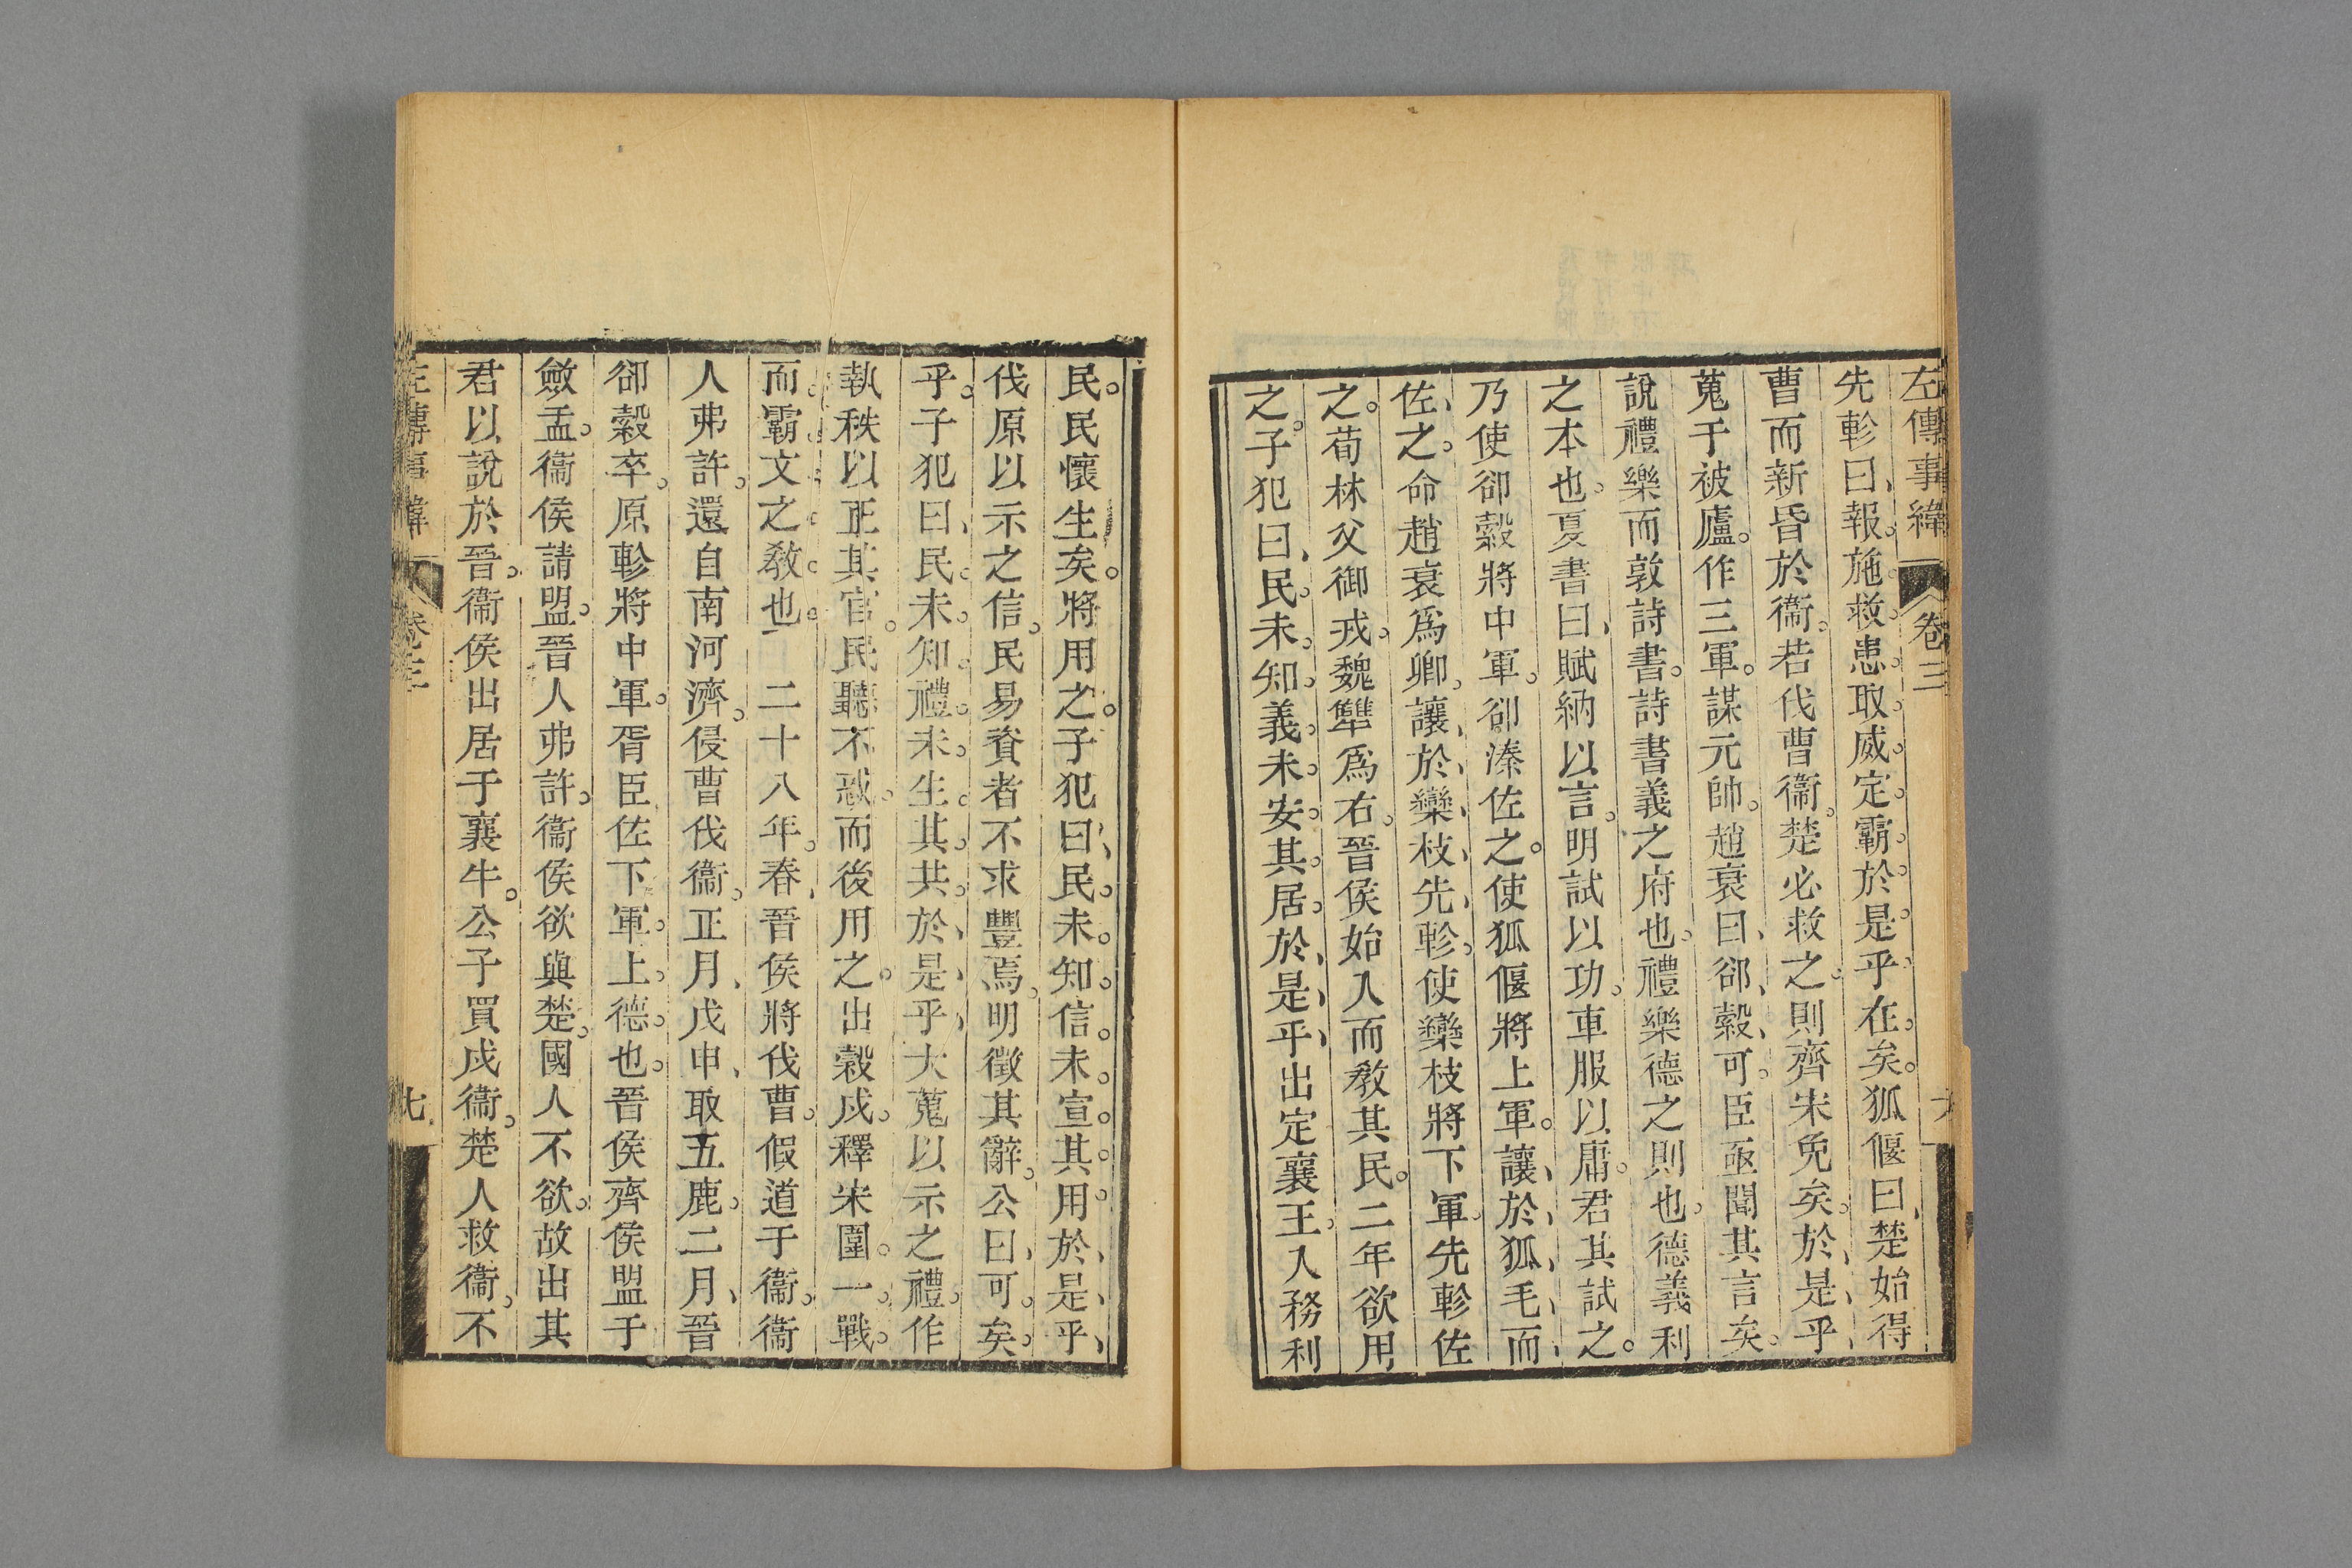 左傳事緯 卷三 六
先軫曰、報。施。救。患。取。威。定。霸。於。是。乎。在。矣。狐偃曰、楚始得
曹而新昏於衞。若伐曹衞。楚必救之。則齊宋免矣。於、是、乎、
蒐于被廬。作三軍。謀元帥。趙衰曰、郤、縠、可。臣亟聞其言矣。
說禮樂而敦詩書。詩書義之府也。禮樂德之則也。德義利
之本也。夏書曰、賦納以言。明試以功。車服以庸。君其試之。
乃使郤縠將中軍。郤溱佐之。使狐偃將上軍。讓、於、狐、毛、而、
佐、之。命趙衰爲卿。讓、於、欒、枝、先、軫。使欒枝將下軍。先軫佐
之。荀林父御戎。魏犨爲右。晉侯始入而教其民。二年欲用
之。子犯曰、民。未。知。義。未。安。其。居。於、是、乎、出定襄王。入務利
民。民懷生矣。將用之。子犯曰、民。未。知。信。未。宣。其。用。於、是、乎、
伐原以示之信。民易資者不求豐焉。明徵其辭。公曰、可。矣。
乎。子犯曰、民。未。知。禮。未。生。其。共。於、是、乎、大蒐以示之禮。作
執秩以正其官。民聽不惑。而後用之。出穀戍。釋宋圍。一。戰。
而。霸。文。之。教。也。 二十八年。春、晉侯將伐曹。假道于衞。衞
人弗許。還自南河濟。侵曹伐衞。正月、戊申、取五鹿。二月、晉
郤縠卒。原軫將中軍。胥臣佐下軍。上。德。也。晉侯齊侯盟于
斂盂。衞侯請盟。晉人弗許。衞侯欲與楚。國人不欲。故出其
君以說於晉。衞侯出居于襄牛。公子買戍衞。楚人救衞。不
左傳事緯 卷三 七